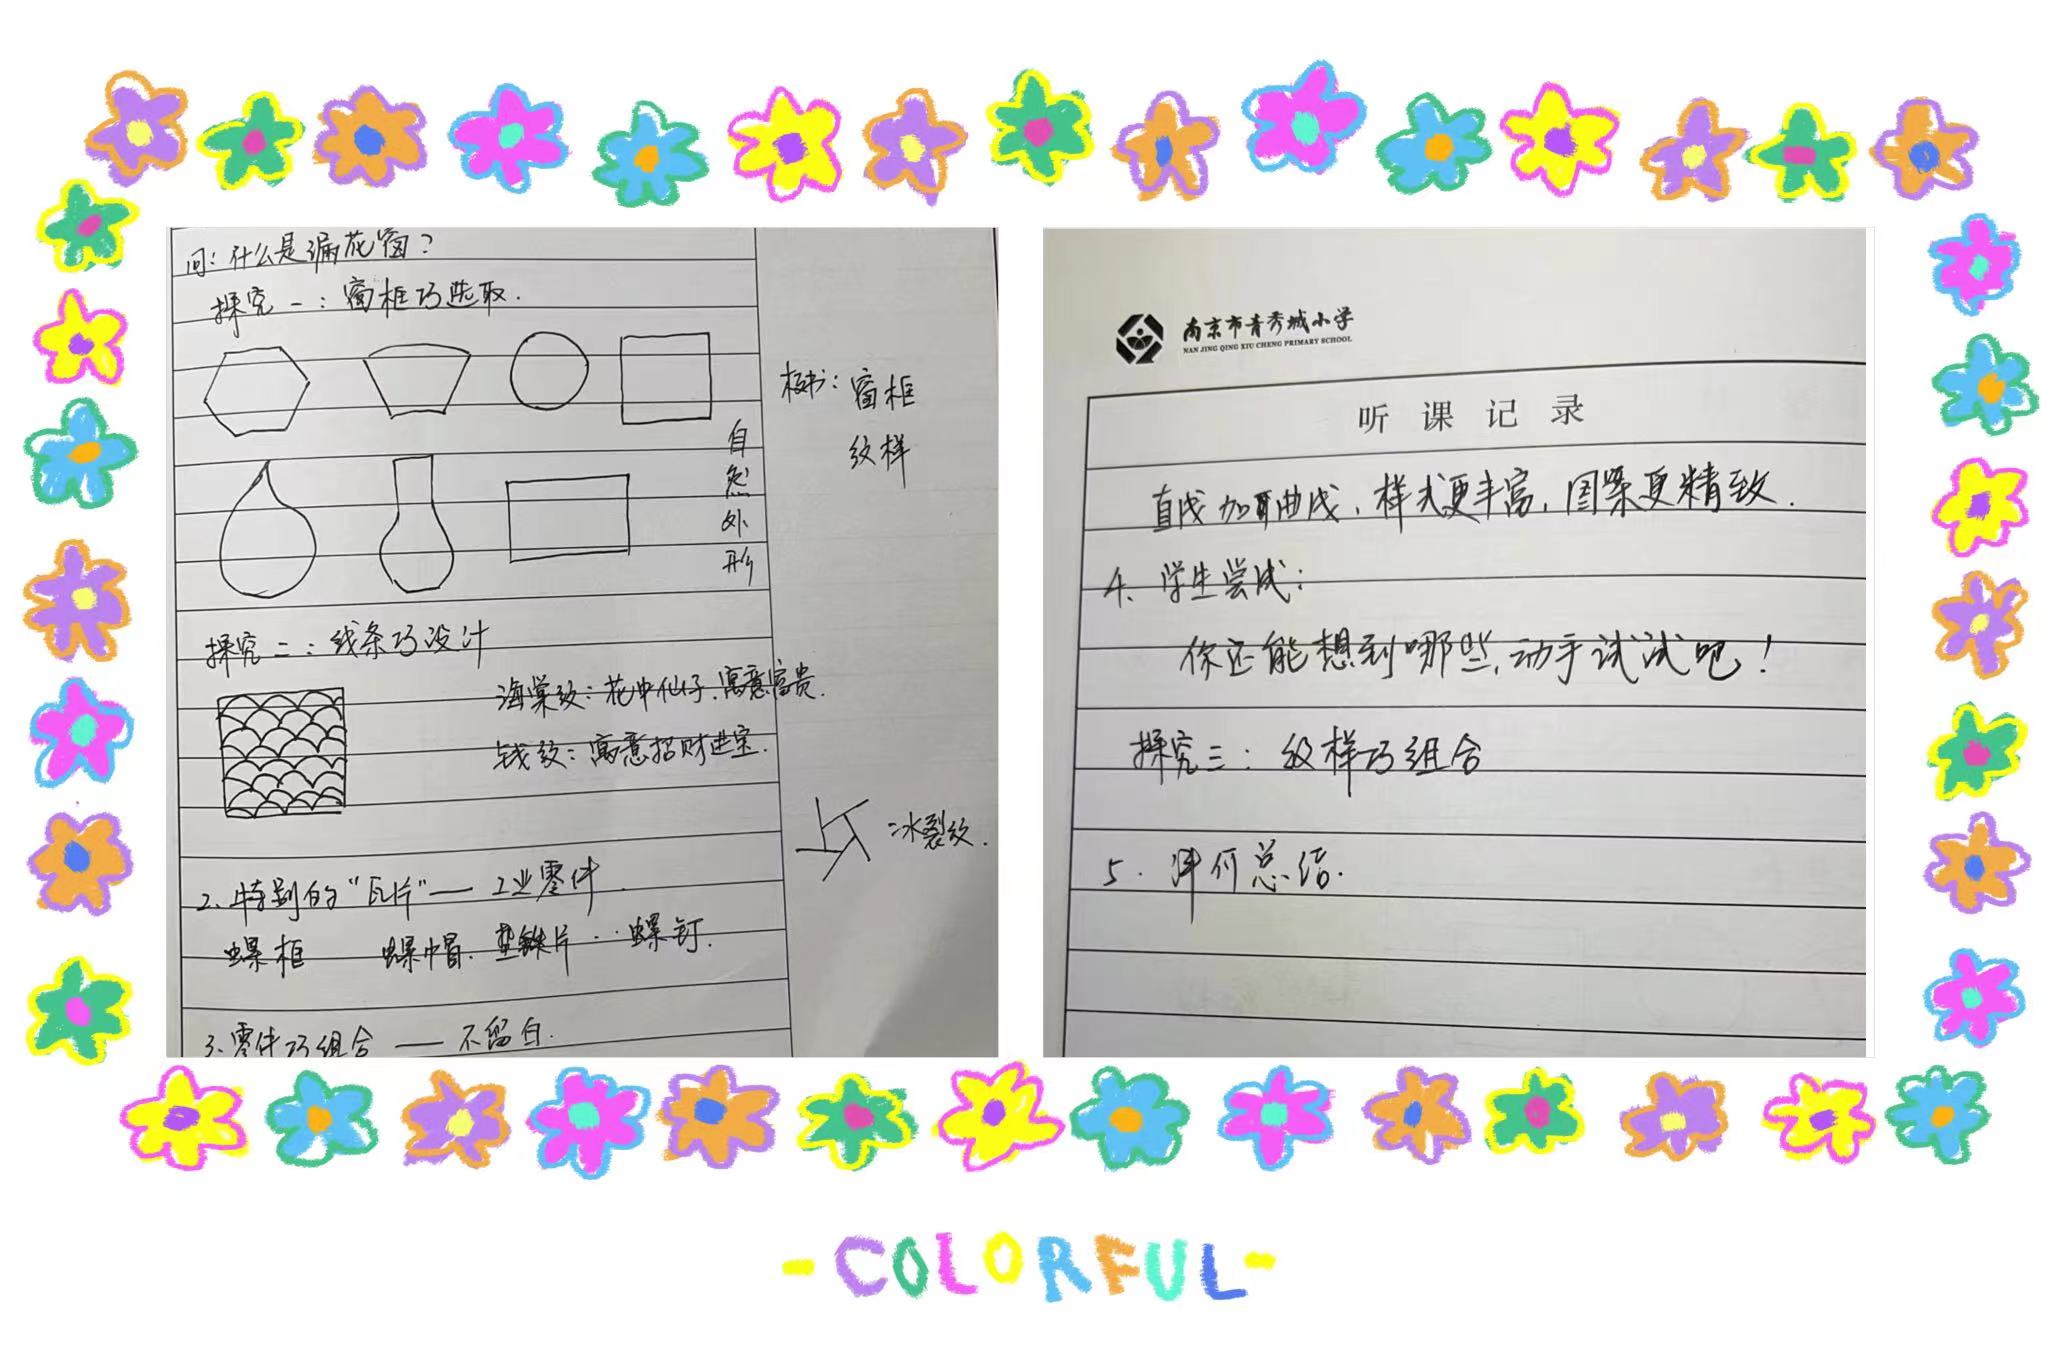 问：什么是漏花窗？
探究一：窗框巧选取.
自然外形
探究二：线条巧设计
海棠纹：花中仙子.寓意富贵.
钱纹：寓意招财进宝.
2.特别的“瓦片”—— 工业零件.
螺框 螺帽. 垫铁片..螺钉.
3.零件巧组合 —— 不留白.
板书：窗框
纹样
=冰裂纹.
南京市青秀城小学
NAN JING QING XIU CHENG PRIMARY SCHOOL
听课记录
直线加曲线，样式更丰富，图案更精致.
4.学生尝试：
你还能想到哪些，动手试试吧！
探究三：纹样巧组合
5. 总结.
-COLORFUL-